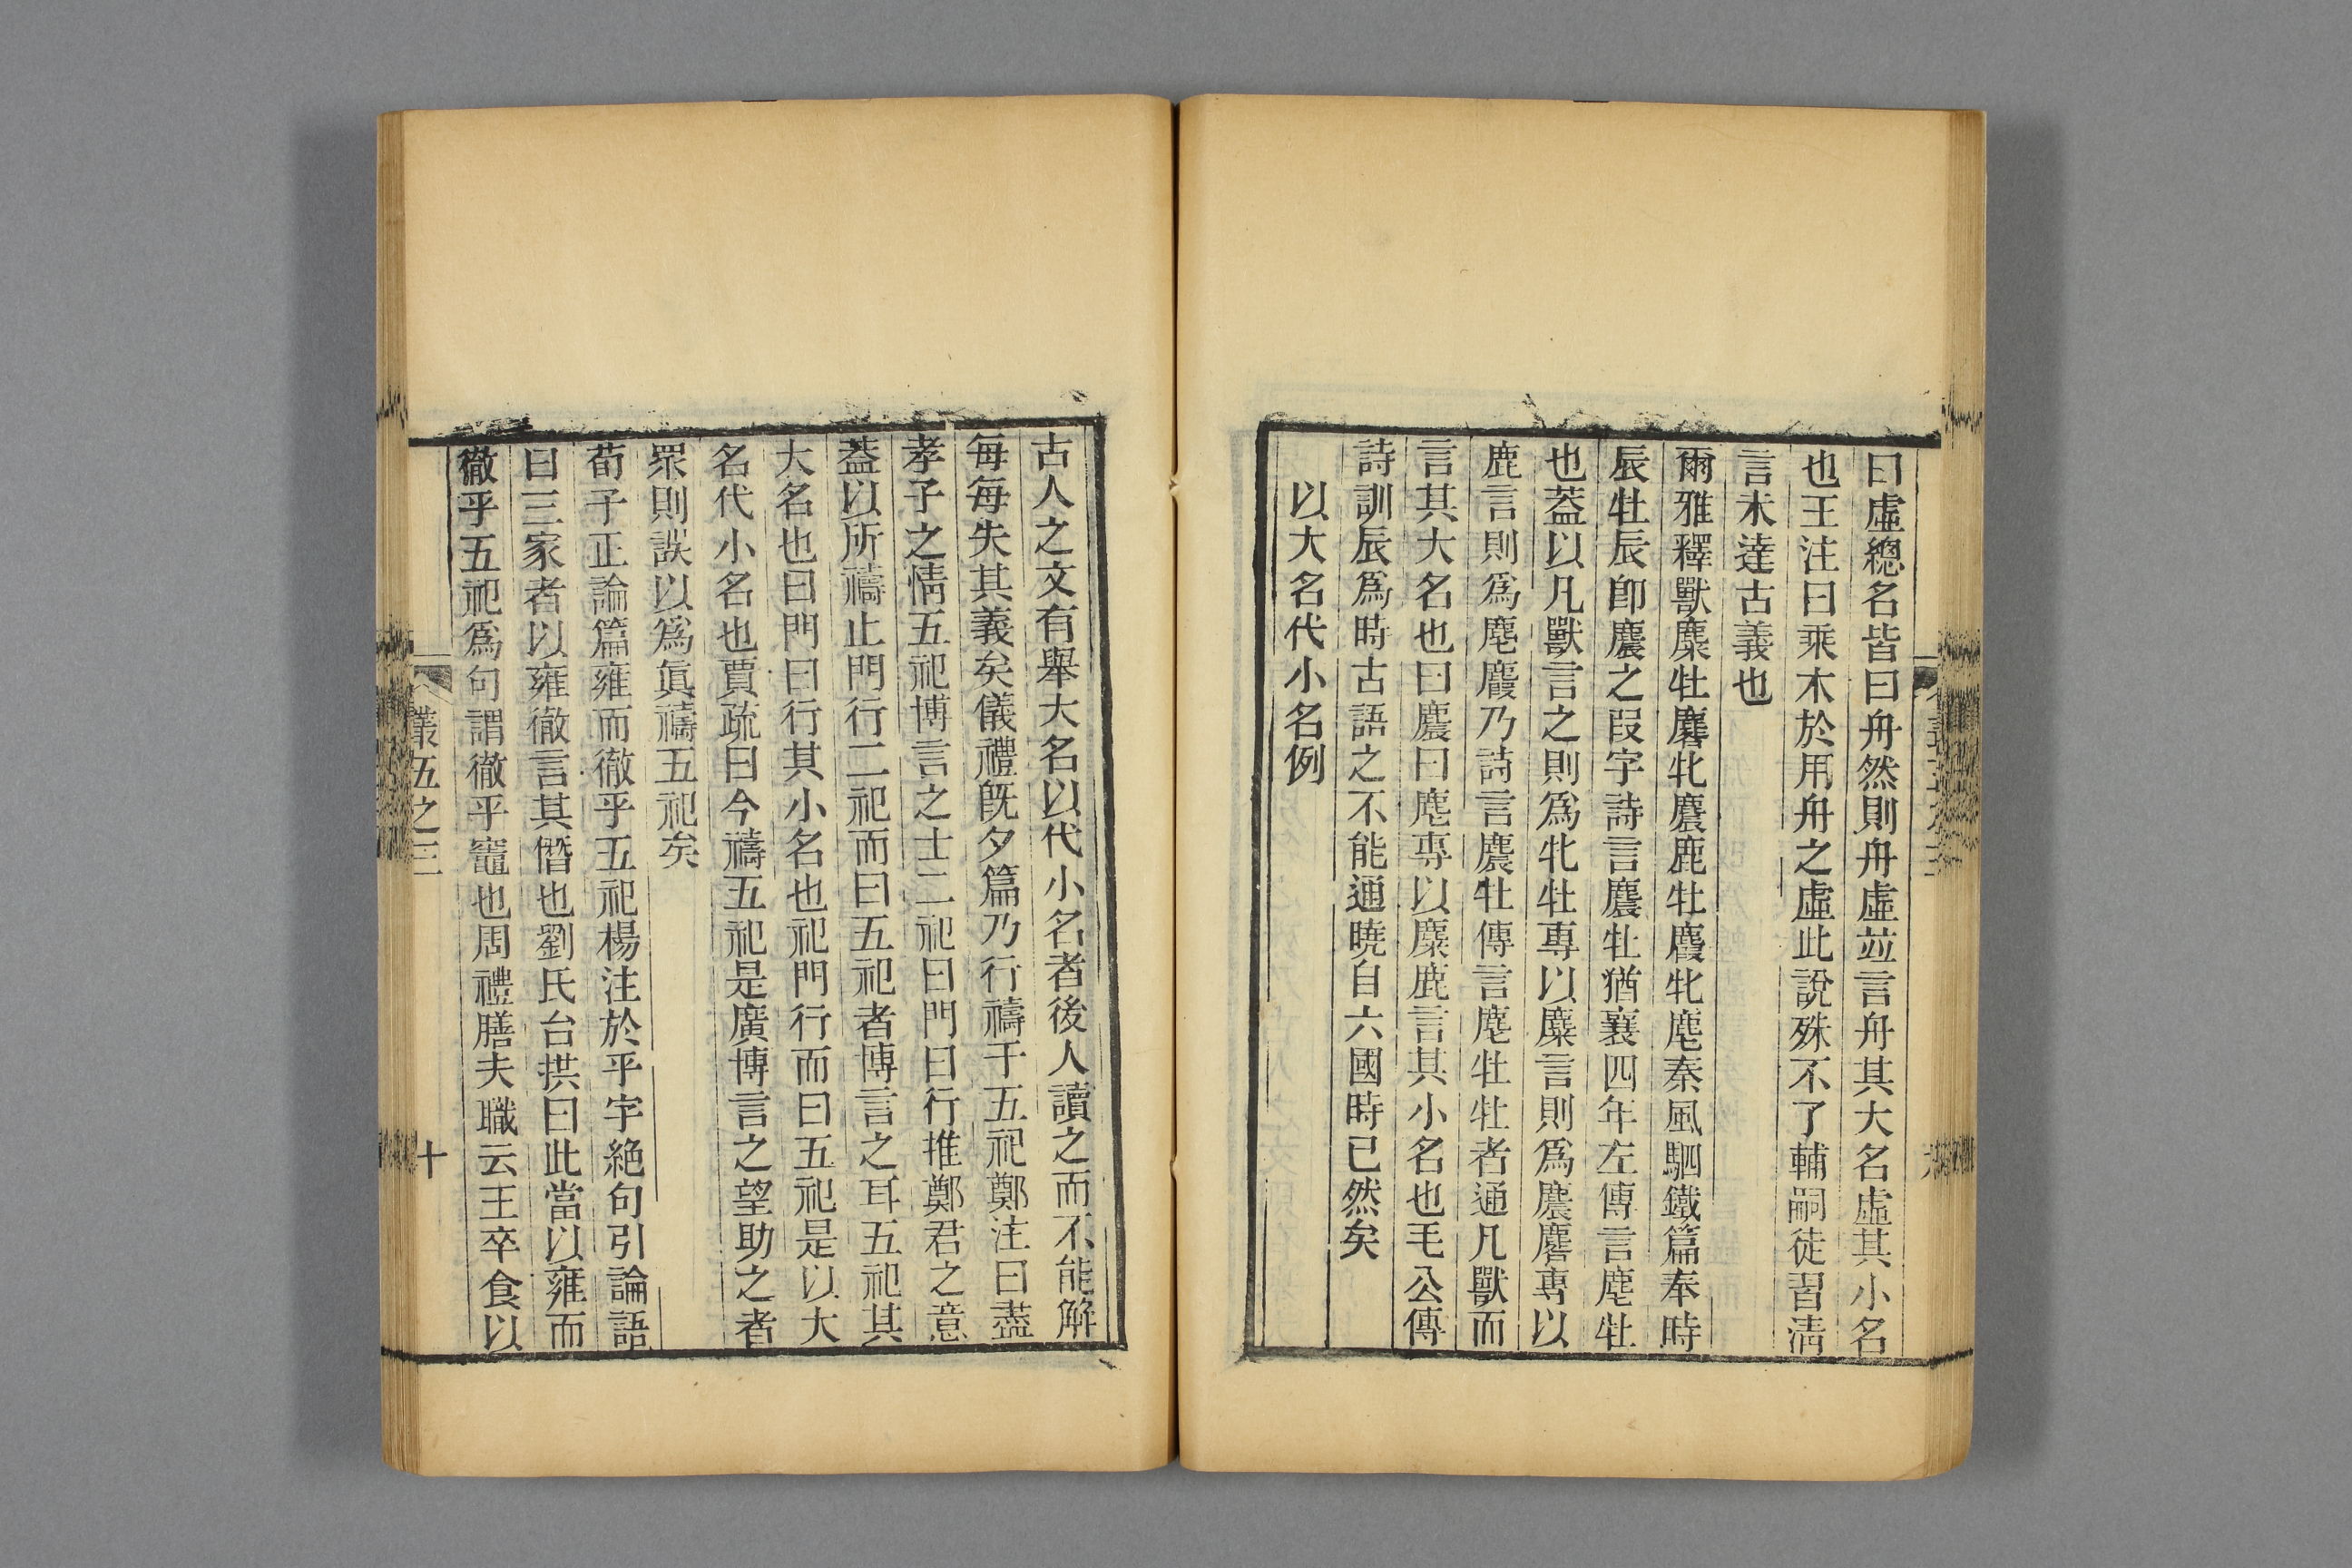 曰虛總名皆曰舟然則舟虛竝言舟其大名虛其小名
也王注曰乘木於用舟之虛此說殊不了輔嗣徒習淸
言未達古義也
爾雅釋獸麋牡麔牝麎鹿牡麚牝麀秦風駟鐵篇奉時
辰牡辰卽麎之叚字詩言麎牡猶襄四年左傳言麀牡
也葢以凡獸言之則爲牝牡專以麋言則爲麎麔專以
鹿言則爲麀麚乃詩言麎牡傳言麀牡牡者通凡獸而
言其大名也曰麎曰麀專以麋鹿言其小名也毛公傳
詩訓辰爲時古語之不能通曉自六國時已然矣
以大名代小名例
古人之文有舉大名以代小名者後人讀之而不能解
每每失其義矣儀禮旣夕篇乃行禱于五祀鄭注曰盡
孝子之情五祀博言之士二祀曰門曰行推鄭君之意
葢以所禱止門行二祀而曰五祀者博言之耳五祀其
大名也曰門曰行其小名也祀門行而曰五祀是以大
名代小名也賈疏曰今禱五祀是廣博言之望助之者
眾則誤以爲眞禱五祀矣
荀子正論篇雍而徹乎五祀楊注於乎字絶句引論語
曰三家者以雍徹言其僭也劉氏台拱曰此當以雍而
徹乎五祀爲句謂徹乎竈也周禮膳夫職云王卒食以
叢五之三
十